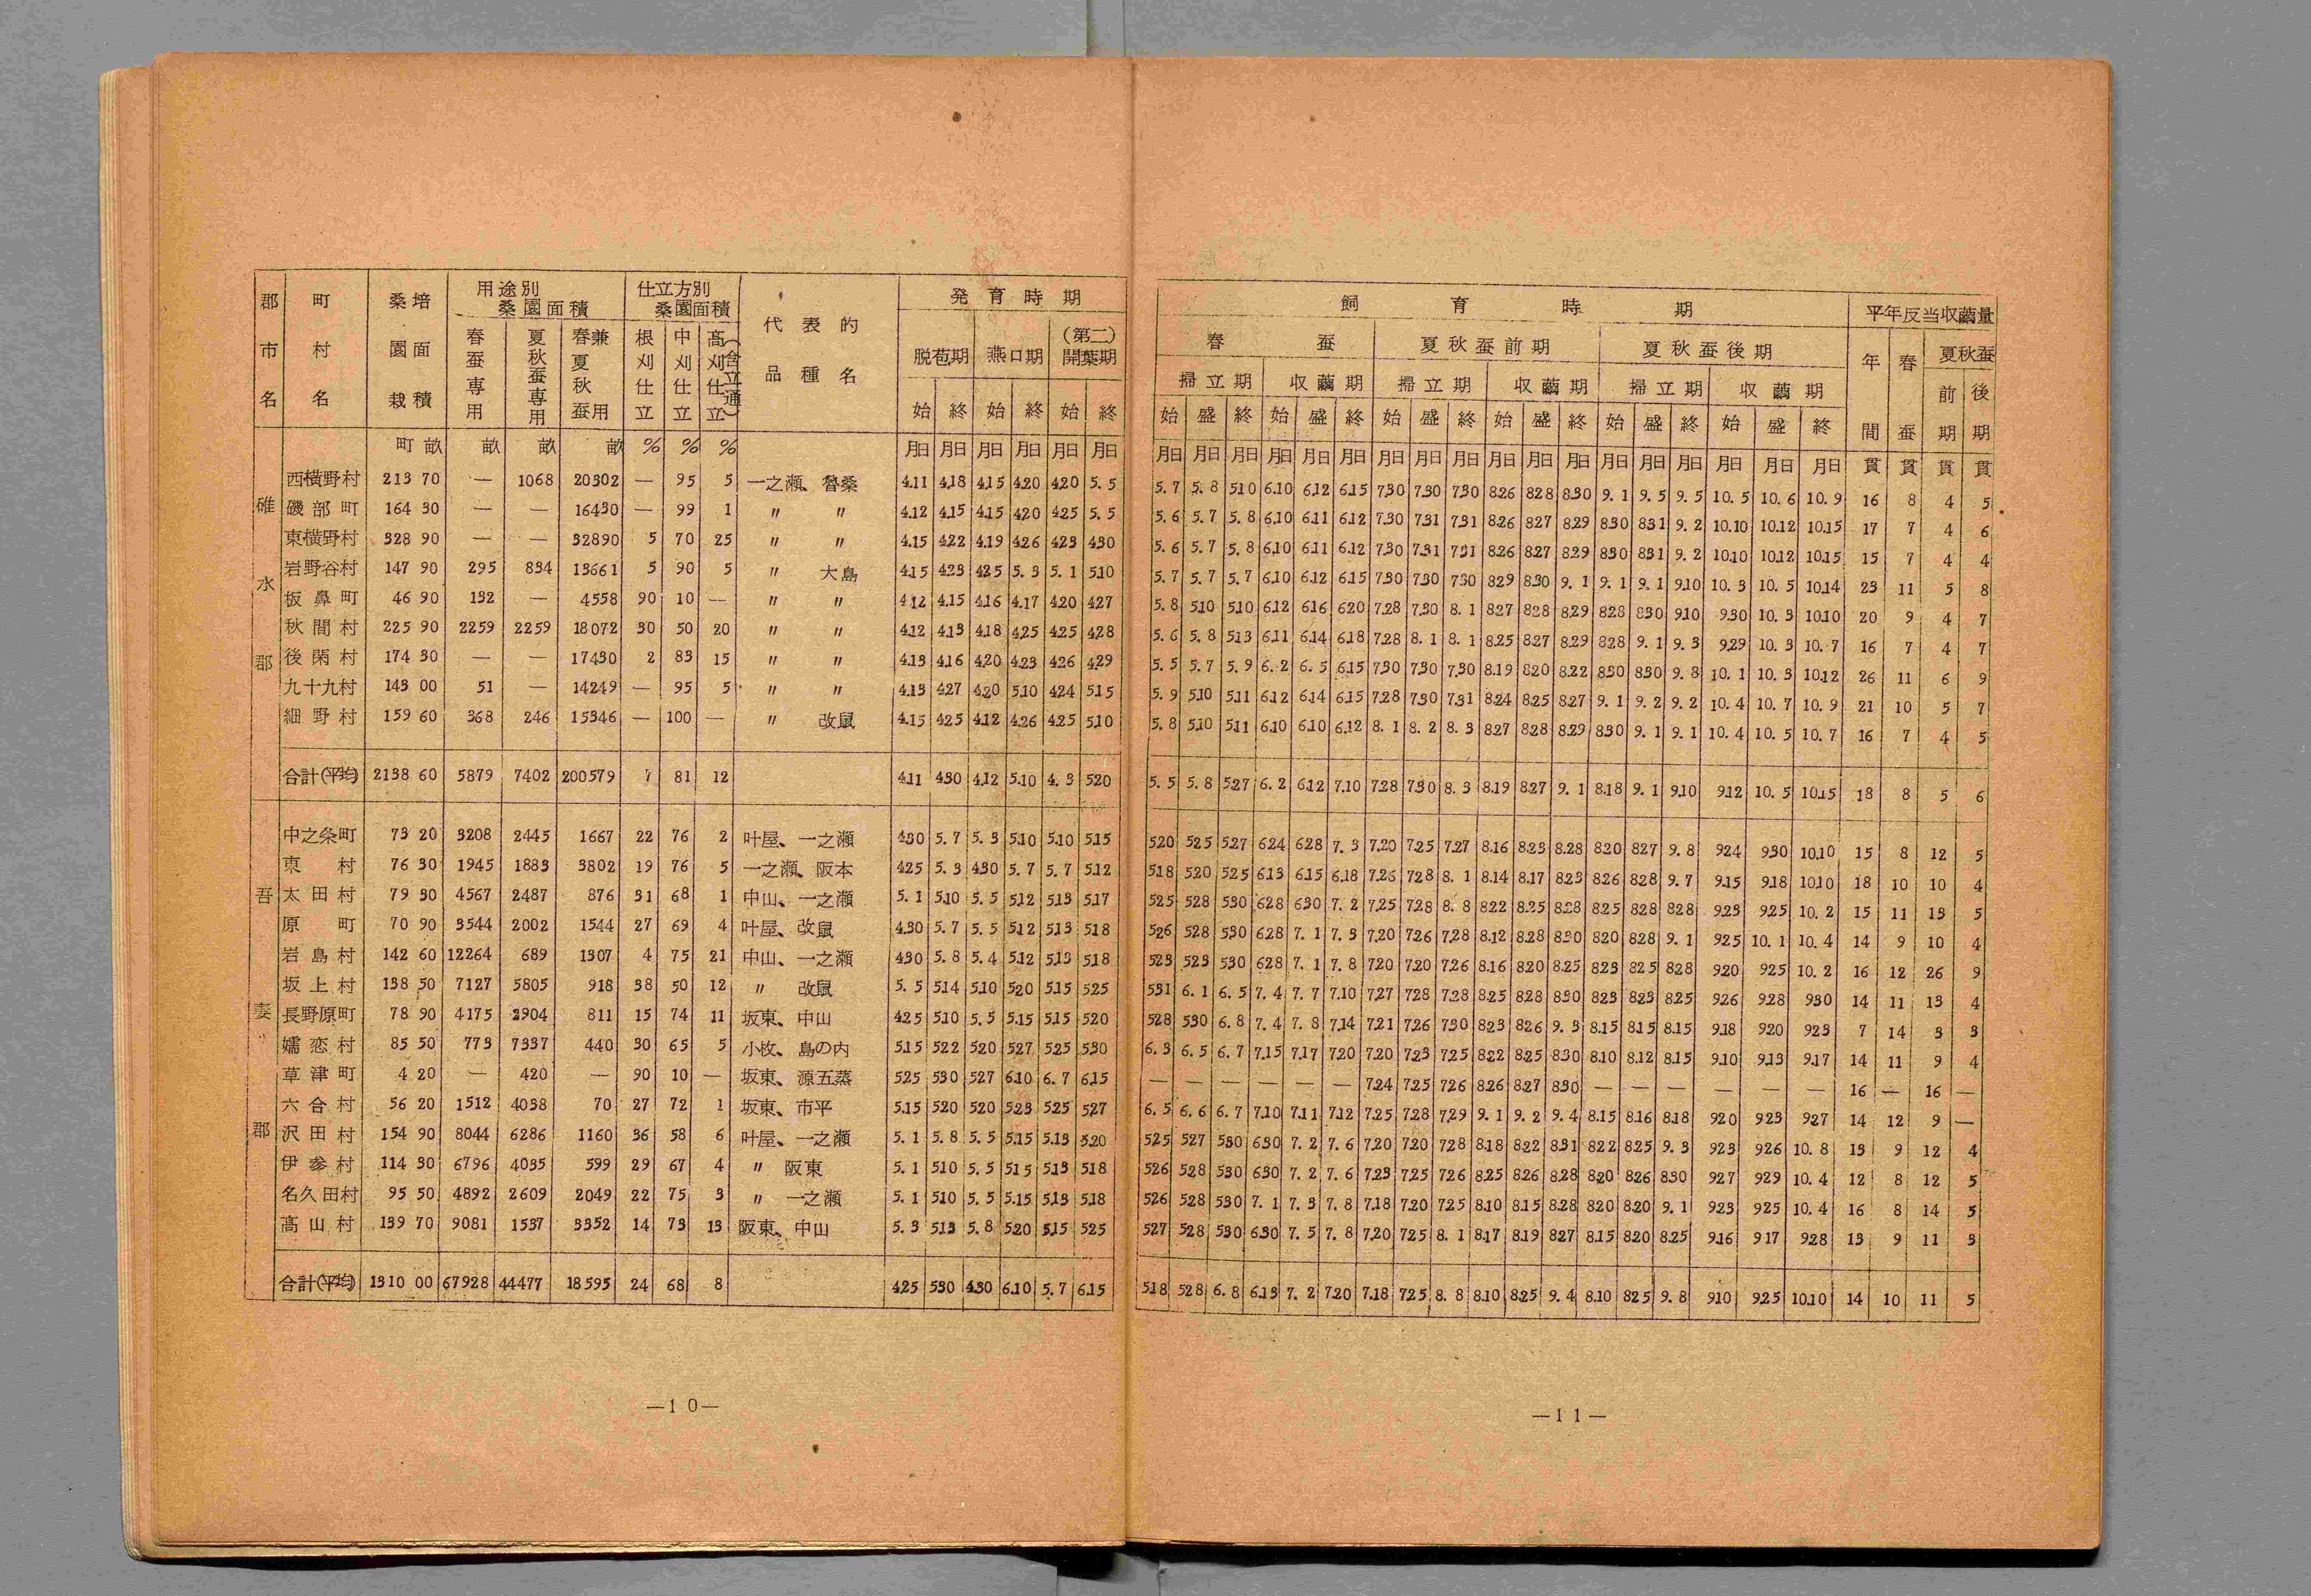 郡市名 町村名 桑園栽培面積 用途別桑園面積 仕立方別桑園面積 代表的品種名 発育時期
春蚕専用 夏秋蚕専用 春夏秋蚕兼用 根刈仕立 中刈仕立 高刈仕立(含立通) 脱苞期 燕口期 (第二)開葉期
始 終 始 終 始 終
町 畝 畝 畝 畝 % % % 月日 月日 月日 月日 月日 月日
碓水郡
西横野村 213 70 — 1068 20302 — 95 5 一之瀬、魯桑 4.11 4.18 4.15 4.20 4.20 5.5
磯部町 164 30 — — 16430 — 99 1 〃 〃 4.12 4.15 4.15 4.20 4.25 5.5
東横野村 328 90 — — 32890 5 70 25 〃 〃 4.15 4.22 4.19 4.26 4.23 4.30
岩野谷村 147 90 295 834 13661 5 90 5 〃 大島 4.15 4.23 4.25 5.3 5.1 5.10
板鼻町 46 90 132 — 4558 90 10 — 〃 〃 4.12 4.15 4.16 4.17 4.20 4.27
秋間村 225 90 2259 2259 18072 30 50 20 〃 〃 4.12 4.13 4.18 4.25 4.25 4.28
後閑村 174 30 — — 17430 2 83 15 〃 〃 4.13 4.16 4.20 4.23 4.26 4.29
九十九村 143 00 51 — 14249 — 95 5 〃 〃 4.13 4.27 4.20 5.10 4.24 5.15
細野村 159 60 368 246 15346 — 100 — 〃 改鼠 4.15 4.25 4.12 4.26 4.25 5.10
合計(平均) 2138 60 5879 7402 200579 7 81 12 4.11 4.30 4.12 5.10 4.3 5.20
吾妻郡
中之条町 73 20 3208 2445 1667 22 76 2 叶屋、一之瀬 4.30 5.7 5.3 5.10 5.10 5.15
東村 76 30 1945 1883 3802 19 76 5 一之瀬、阪本 4.25 5.3 4.30 5.7 5.7 5.12
太田村 79 30 4567 2487 876 31 68 1 中山、一之瀬 5.1 5.10 5.5 5.12 5.13 5.17
原町 70 90 3544 2002 1544 27 69 4 叶屋、改鼠 4.30 5.7 5.5 5.12 5.13 5.18
岩島村 142 60 12264 689 1307 4 75 21 中山、一之瀬 4.30 5.8 5.4 5.12 5.13 5.18
坂上村 138 50 7127 5805 918 38 50 12 〃 改鼠 5.5 5.14 5.10 5.20 5.15 5.25
長野原町 78 90 4175 2904 811 15 74 11 坂東、中山 4.25 5.10 5.5 5.15 5.15 5.20
嬬恋村 85 50 773 7337 440 30 65 5 小牧、島の内 5.15 5.22 5.20 5.27 5.25 5.30
草津町 4 20 — 420 — 90 10 — 坂東、源五蒸 5.25 5.30 5.27 6.10 6.7 6.15
六合村 56 20 1512 4038 70 27 72 1 坂東、市平 5.15 5.20 5.20 5.23 5.25 5.27
沢田村 154 90 8044 6286 1160 36 58 6 叶屋、一之瀬 5.1 5.8 5.5 5.15 5.13 5.20
伊参村 114 30 6796 4035 599 29 67 4 〃 阪東 5.1 5.10 5.5 5.15 5.13 5.18
名久田村 95 50 4892 2609 2049 22 75 3 〃 一之瀬 5.1 5.10 5.5 5.15 5.13 5.18
高山村 139 70 9081 1537 3352 14 73 13 阪東、中山 5.3 5.13 5.8 5.20 5.15 5.25
合計(平均) 1310 00 67928 44477 18595 24 68 8 4.25 5.30 4.30 6.10 5.7 6.15
—10—
飼育時期 平年反当収繭量
春蚕 夏秋蚕前期 夏秋蚕後期 年間 春蚕 夏秋蚕
掃立期 収繭期 掃立期 収繭期 掃立期 収繭期 前期 後期
始 盛 終 始 盛 終 始 盛 終 始 盛 終 始 盛 終 始 盛 終
月日 月日 月日 月日 月日 月日 月日 月日 月日 月日 月日 月日 月日 月日 月日 月日 月日 月日 貫 貫 貫 貫
5.7 5.8 5.10 6.10 6.12 6.15 7.30 7.30 7.30 8.26 8.28 8.30 9.1 9.5 9.5 10.5 10.6 10.9 16 8 4 5
5.6 5.7 5.8 6.10 6.11 6.12 7.30 7.31 7.31 8.26 8.27 8.29 8.30 8.31 9.2 10.10 10.12 10.15 17 7 4 6
5.6 5.7 5.8 6.10 6.11 6.12 7.30 7.31 7.31 8.26 8.27 8.29 8.30 8.31 9.2 10.10 10.12 10.15 15 7 4 4
5.7 5.7 5.7 6.10 6.12 6.15 7.30 7.30 7.30 8.29 8.30 9.1 9.1 9.1 9.10 10.3 10.5 10.14 23 11 5 8
5.8 5.10 5.10 6.12 6.16 6.20 7.28 7.30 8.1 8.27 8.28 8.29 8.28 8.30 9.10 9.30 10.3 10.10 20 9 4 7
5.6 5.8 5.13 6.11 6.14 6.18 7.28 8.1 8.1 8.25 8.27 8.29 8.28 9.1 9.3 9.29 10.3 10.7 16 7 4 7
5.5 5.7 5.9 6.2 6.5 6.15 7.30 7.30 7.30 8.19 8.20 8.22 8.30 8.30 9.8 10.1 10.3 10.12 26 11 6 9
5.9 5.10 5.11 6.12 6.14 6.15 7.28 7.30 7.31 8.24 8.25 8.27 9.1 9.2 9.2 10.4 10.7 10.9 21 10 5 7
5.8 5.10 5.11 6.10 6.10 6.12 8.1 8.2 8.3 8.27 8.28 8.29 8.30 9.1 9.1 10.4 10.5 10.7 16 7 4 5
5.5 5.8 5.27 6.2 6.12 7.10 7.28 7.30 8.3 8.19 8.27 9.1 8.18 9.1 9.10 9.12 10.5 10.15 18 8 5 6
5.20 5.25 5.27 6.24 6.28 7.3 7.20 7.25 7.27 8.16 8.23 8.28 8.20 8.27 9.8 9.24 9.30 10.10 15 8 12 5
5.18 5.20 5.25 6.13 6.15 6.18 7.26 7.28 8.1 8.14 8.17 8.23 8.26 8.28 9.7 9.15 9.18 10.10 18 10 10 4
5.25 5.28 5.30 6.28 6.30 7.2 7.25 7.28 8.8 8.22 8.25 8.28 8.25 8.28 8.28 9.23 9.25 10.2 15 11 13 5
5.26 5.28 5.30 6.28 7.1 7.3 7.20 7.26 7.28 8.12 8.28 8.30 8.20 8.28 9.1 9.25 10.1 10.4 14 9 10 4
5.23 5.23 5.30 6.28 7.1 7.8 7.20 7.20 7.26 8.16 8.20 8.25 8.23 8.25 8.28 9.20 9.25 10.2 16 12 26 9
5.31 6.1 6.5 7.4 7.7 7.10 7.27 7.28 7.28 8.25 8.28 8.30 8.23 8.23 8.25 9.26 9.28 9.30 14 11 13 4
5.28 5.30 6.8 7.4 7.8 7.14 7.21 7.26 7.30 8.23 8.26 9.3 8.15 8.15 8.15 9.18 9.20 9.23 7 14 3 3
6.3 6.5 6.7 7.15 7.17 7.20 7.20 7.23 7.25 8.22 8.25 8.30 8.10 8.12 8.15 9.10 9.13 9.17 14 11 9 4
— — — — — — 7.24 7.25 7.26 8.26 8.27 8.30 — — — — — — 16 — 16 —
6.5 6.6 6.7 7.10 7.11 7.12 7.25 7.28 7.29 9.1 9.2 9.4 8.15 8.16 8.18 9.20 9.23 9.27 14 12 9 —
5.25 5.27 5.30 6.30 7.2 7.6 7.20 7.20 7.28 8.18 8.22 8.31 8.22 8.25 9.3 9.23 9.26 10.8 13 9 12 4
5.26 5.28 5.30 6.30 7.2 7.6 7.23 7.25 7.26 8.25 8.26 8.28 8.20 8.26 8.30 9.27 9.29 10.4 12 8 12 5
5.26 5.28 5.30 7.1 7.3 7.8 7.18 7.20 7.25 8.10 8.15 8.28 8.20 8.20 9.1 9.23 9.25 10.4 16 8 14 5
5.27 5.28 5.30 6.30 7.5 7.8 7.20 7.25 8.1 8.17 8.19 8.27 8.15 8.20 8.25 9.16 9.17 9.28 13 9 11 3
5.18 5.28 6.8 6.13 7.2 7.20 7.18 7.25 8.8 8.10 8.25 9.4 8.10 8.25 9.8 9.10 9.25 10.10 14 10 11 5
—11—